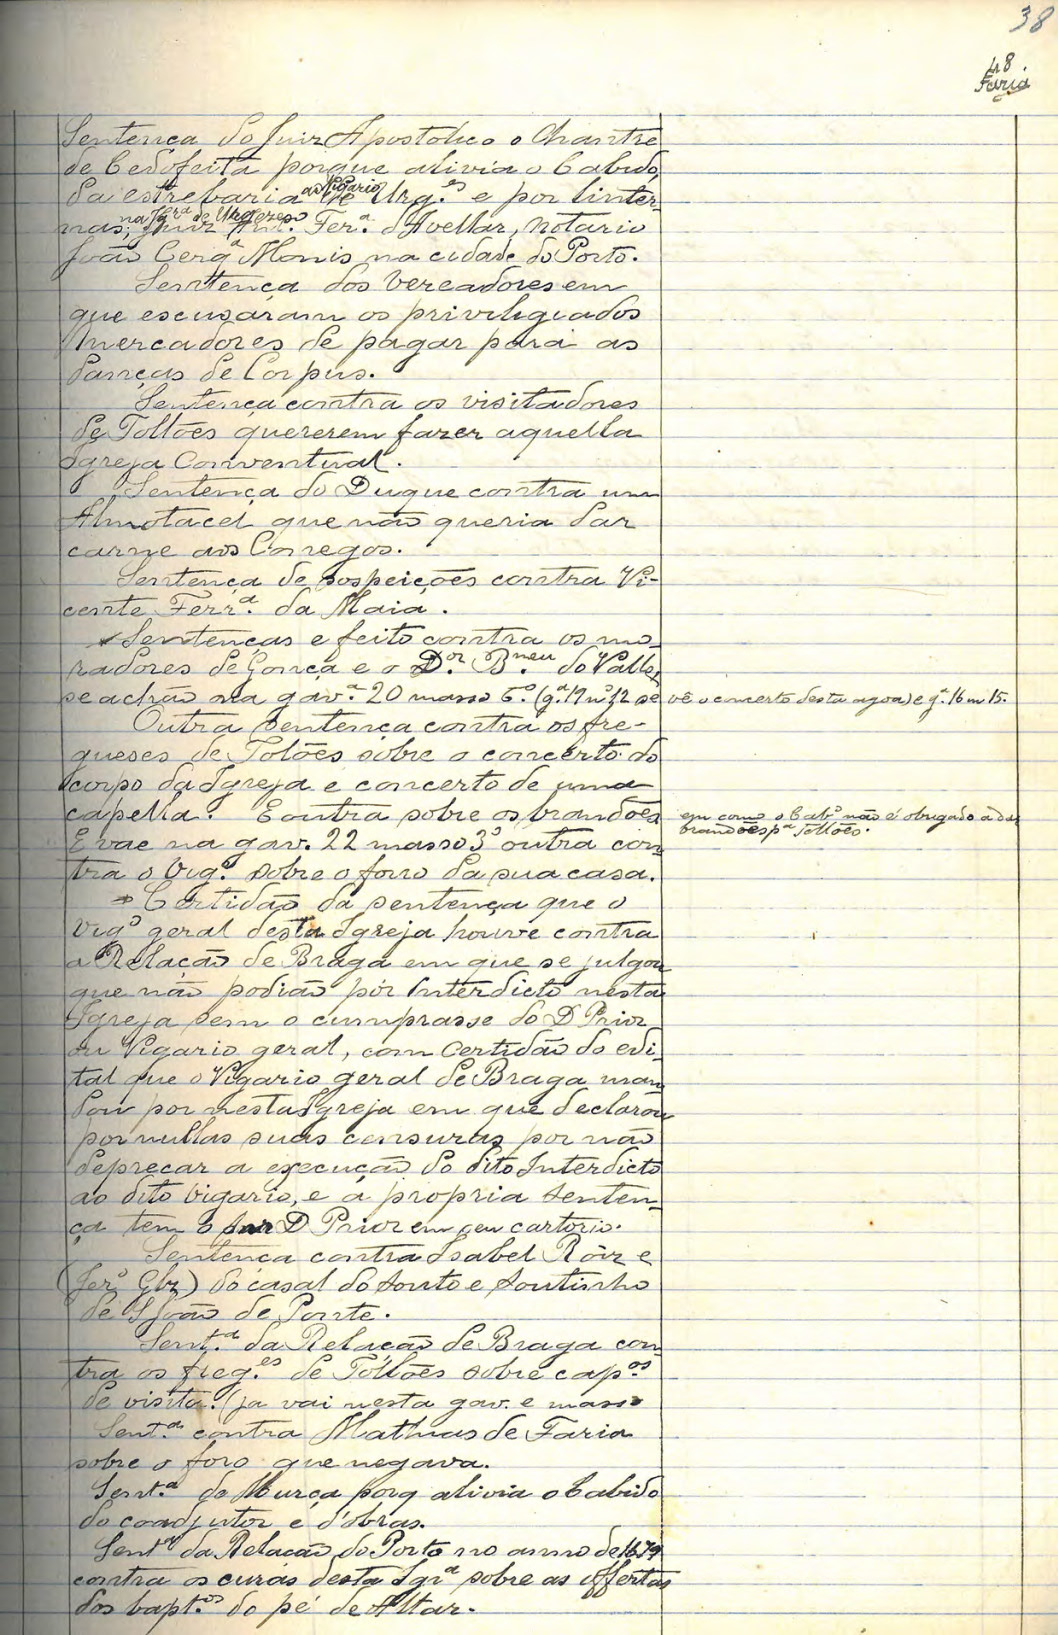 38
48
Faria
Sentença do Juiz Apostolico o Chantre
de Cedofeita porque alivia o Cabido
da estrebaria ao Vigario de Urg.es e por linter-
na Igr.ª de Urgezes
nas; Juiz Ant.º Fer.ª d'Avellar, notario
João Cerq.ª Monis na cidade do Porto.
Sentença dos Vereadores em
que escusaram os privilegiados
Mercadores de pagar para as
danças de Corpus.
Sentença contra os visitadores
de Tollões quererem fazer aquella
Igreja Conventual.
Sentença do Duque contra um
Almotacel que não queria dar
carne aos Conegos.
Sentença de sospeições contra Vi-
cente Ferr.ª da Maia.
Sentenças e feito contra os mo-
radores de Gonça e o D.or B.meu do Valle,
se achão na gav.ª 20 masso 6.º (g.ª 19 nº 12 se vê o concerto desta agoa) e g.ª 16 m 15.
Outra sentença contra os fre-
gueses de Tolões sobre o concerto do
corpo da Igreja e concerto de uma
capella. E outra sobre os brandões em como o Cab.º não é obrigado a dar
brandões p.ª Tollões.
E vae na gav. 22 masso 3º outra con-
tra o Vig.º sobre o foro da sua casa.
Certidão da sentença que o
Vig.º geral desta Igreja houve contra
a Relação de Braga em que se julgou
que não podião pôr Interdicto nesta
Igreja sem o cumprasse do D Prior
ou Vigario geral, com Certidão do edi-
tal que o Vigario geral de Braga man-
dou por nesta Igreja em que declarou
por nullas suas censuras por não
deprecar a execução do dito Interdicto
ao dito vigario, e a propria senten-
ça tem o D Prior em seu cartorio.
Sentença contra Isabel Roiz e
(Jer.º Glz) do casal do Souto e Soutinho
de S João de Ponte.
Sent.ª da Relação de Braga con-
tra os freg.es de Tollões sobre cap.os
de visita. (ja vai nesta gav. e masso
Sent.ª contra Mathias de Faria
sobre o foro que negava.
Sent.ª de Murça porq alivia o Cabido
do coadjutor e d'obras.
Sent.ª da Relação do Porto no anno de 1679
contra os curas desta Igr.ª sobre as offertas
dos bapt.os do pé de Altar.